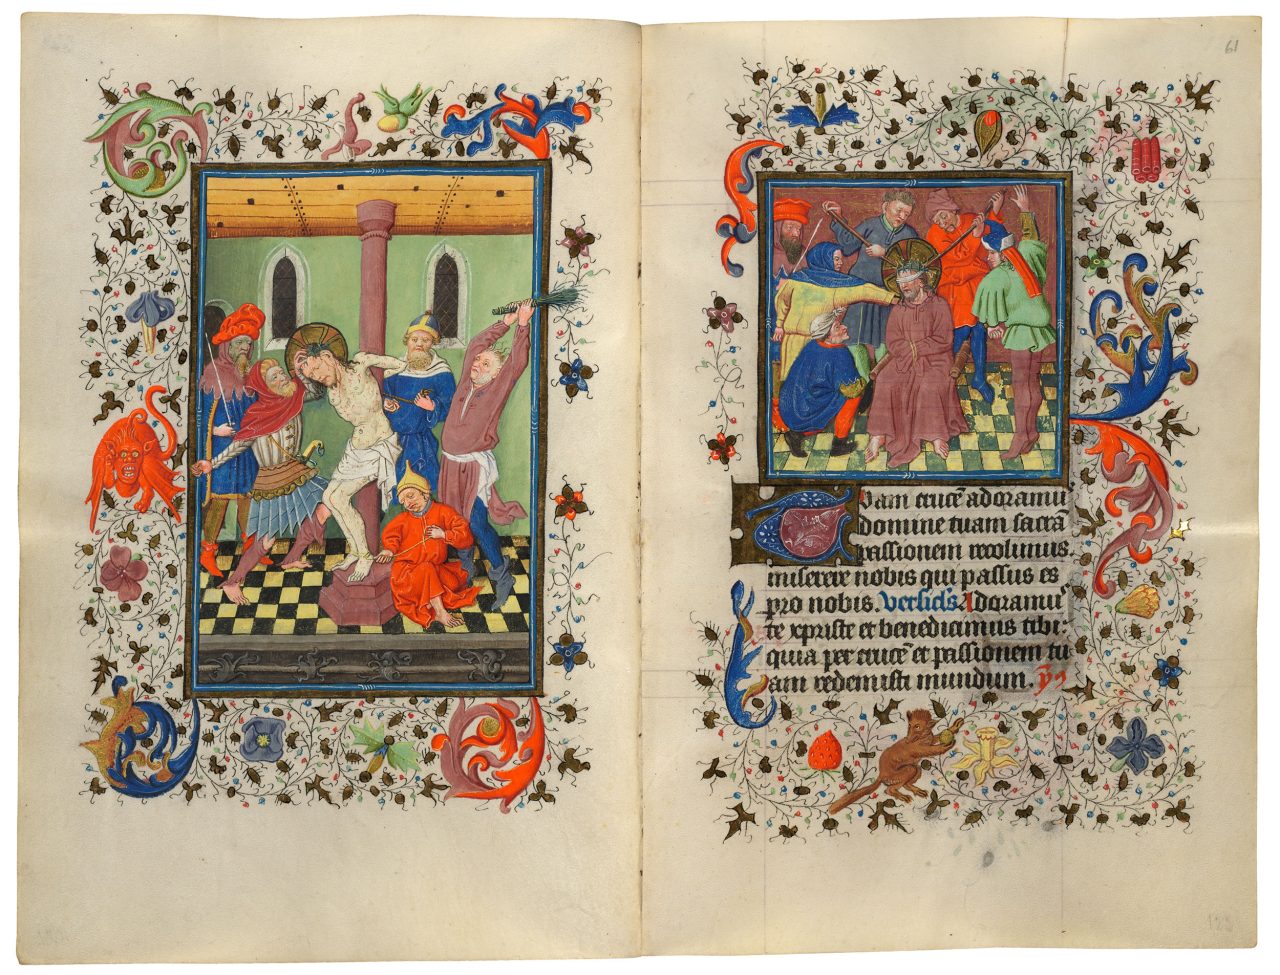 61
Tuam crucē adoramuˀ
domine tuam sacrā
passionem recolimus.
miserere nobis qui passus es
pro nobis. Versicl's Adoramuˀ
te xpriste et benedicimus tibi:
quia per crucē et passionem tu
am redemisti mundum.